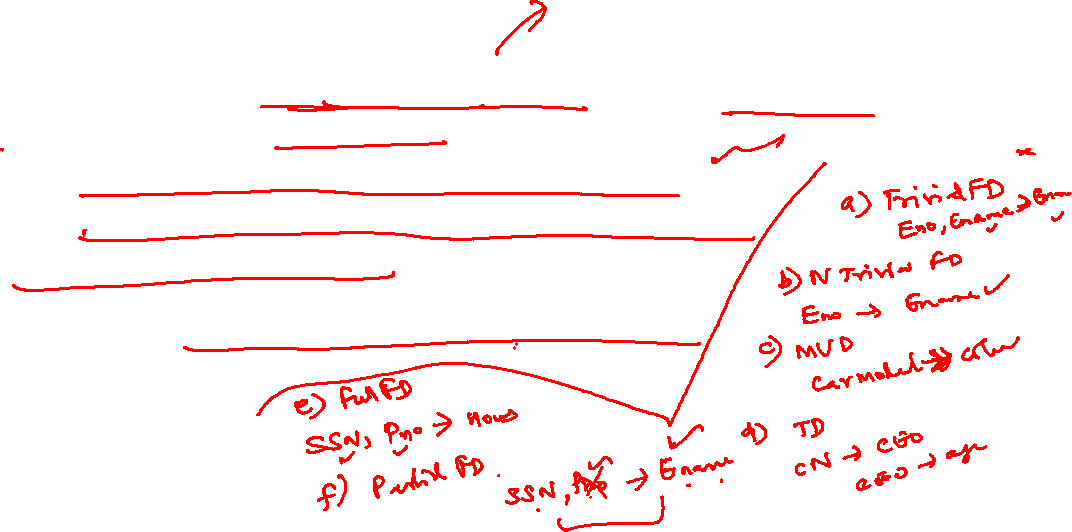 a) Trivial FD
Eno, Ename → Ename
b) N Trivial FD
Eno → Ename ✓
c) MVD
Car model →→ Color
d) TD
CN → CEO
CEO → age
e) Full FD
SSN, Pno → Hours
f) Partial FD
SSN, Pno → Ename